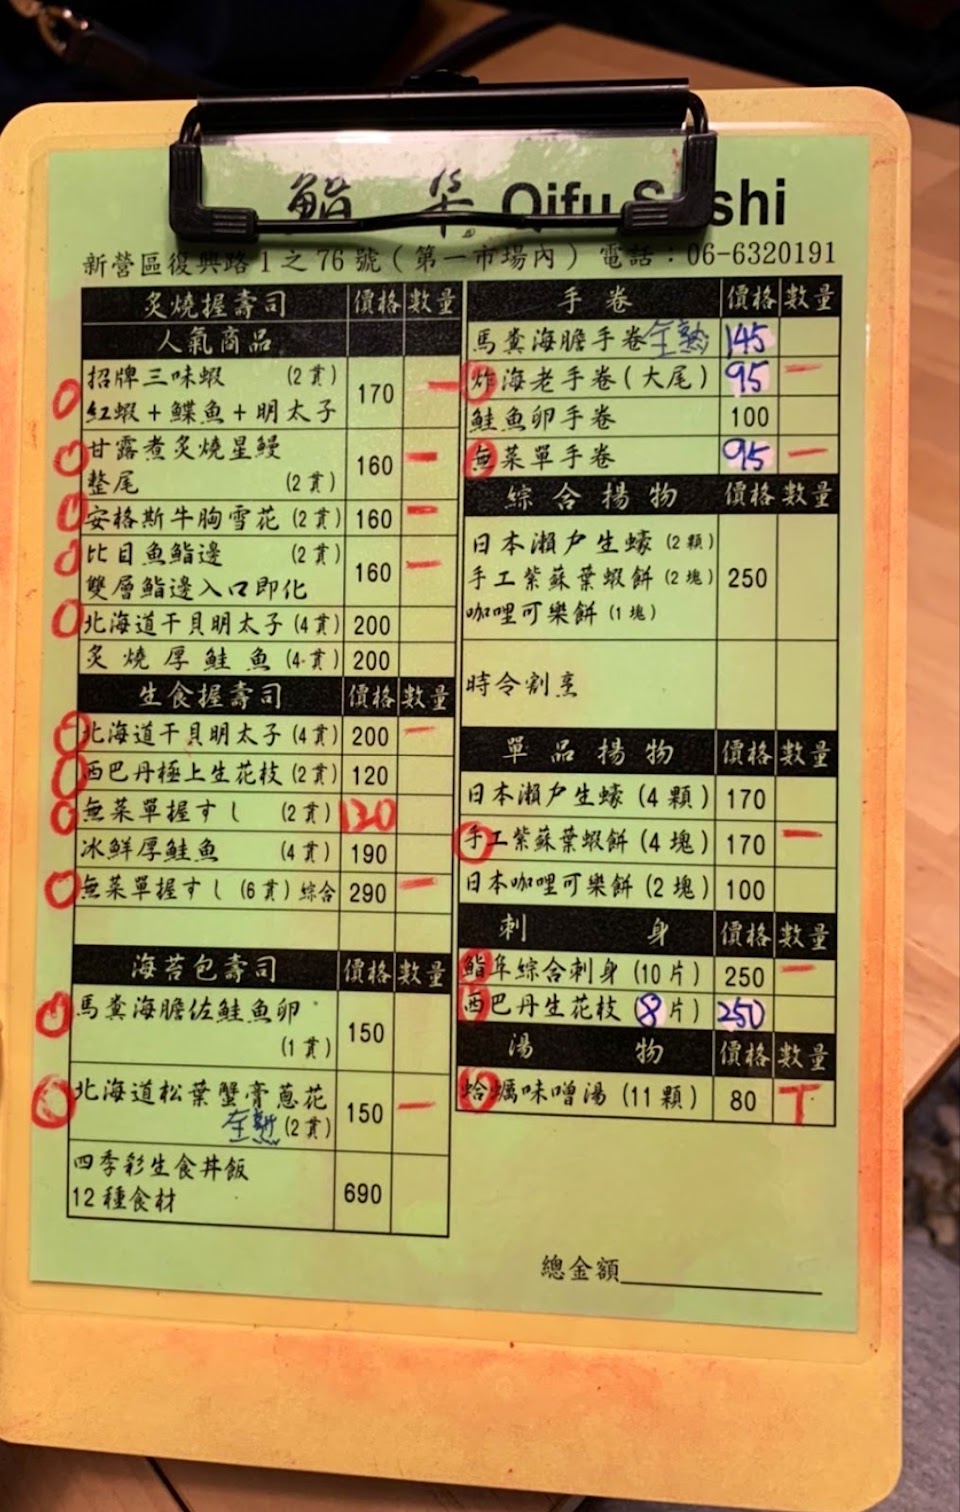 鮨 Qifu Sushi
新營區復興路1之76號(第一市場內) 電話:06-6320191
炙燒握壽司 價格 數量
人氣商品
招牌三味蝦 (2貫)
紅蝦+鰈魚+明太子 170 一
甘露煮炙燒星鰻
整尾 (2貫) 160 一
安格斯牛胸雪花 (2貫) 160 一
比目魚鮨邊 (2貫)
雙層鮨邊入口即化 160 一
北海道干貝明太子 (4貫) 200
炙燒厚鮭魚 (4貫) 200
生食握壽司 價格 數量
北海道干貝明太子 (4貫) 200 一
西巴丹極上生花枝 (2貫) 120
無菜單握すし (2貫) 120
冰鮮厚鮭魚 (4貫) 190
無菜單握すし (6貫) 綜合 290 一
海苔包壽司 價格 數量
馬糞海膽佐鮭魚卵
(1貫) 150
北海道松葉蟹膏蔥花
全熟 (2貫) 150 一
四季彩生食丼飯
12種食材 690
手卷 價格 數量
馬糞海膽手卷 全熟 145
炸海老手卷(大尾) 95 一
鮭魚卵手卷 100
無菜單手卷 95 一
綜合揚物 價格 數量
日本瀨戶生蠔 (2顆)
手工紫蘇葉蝦餅 (2塊) 250
咖哩可樂餅 (1塊)
時令割烹
單品揚物 價格 數量
日本瀨戶生蠔 (4顆) 170
手工紫蘇葉蝦餅 (4塊) 170 一
日本咖哩可樂餅 (2塊) 100
刺身 價格 數量
鮨阜綜合刺身 (10片) 250 一
西巴丹生花枝 (8片) 250
湯物 價格 數量
蛤蠣味噌湯 (11顆) 80 T
總金額